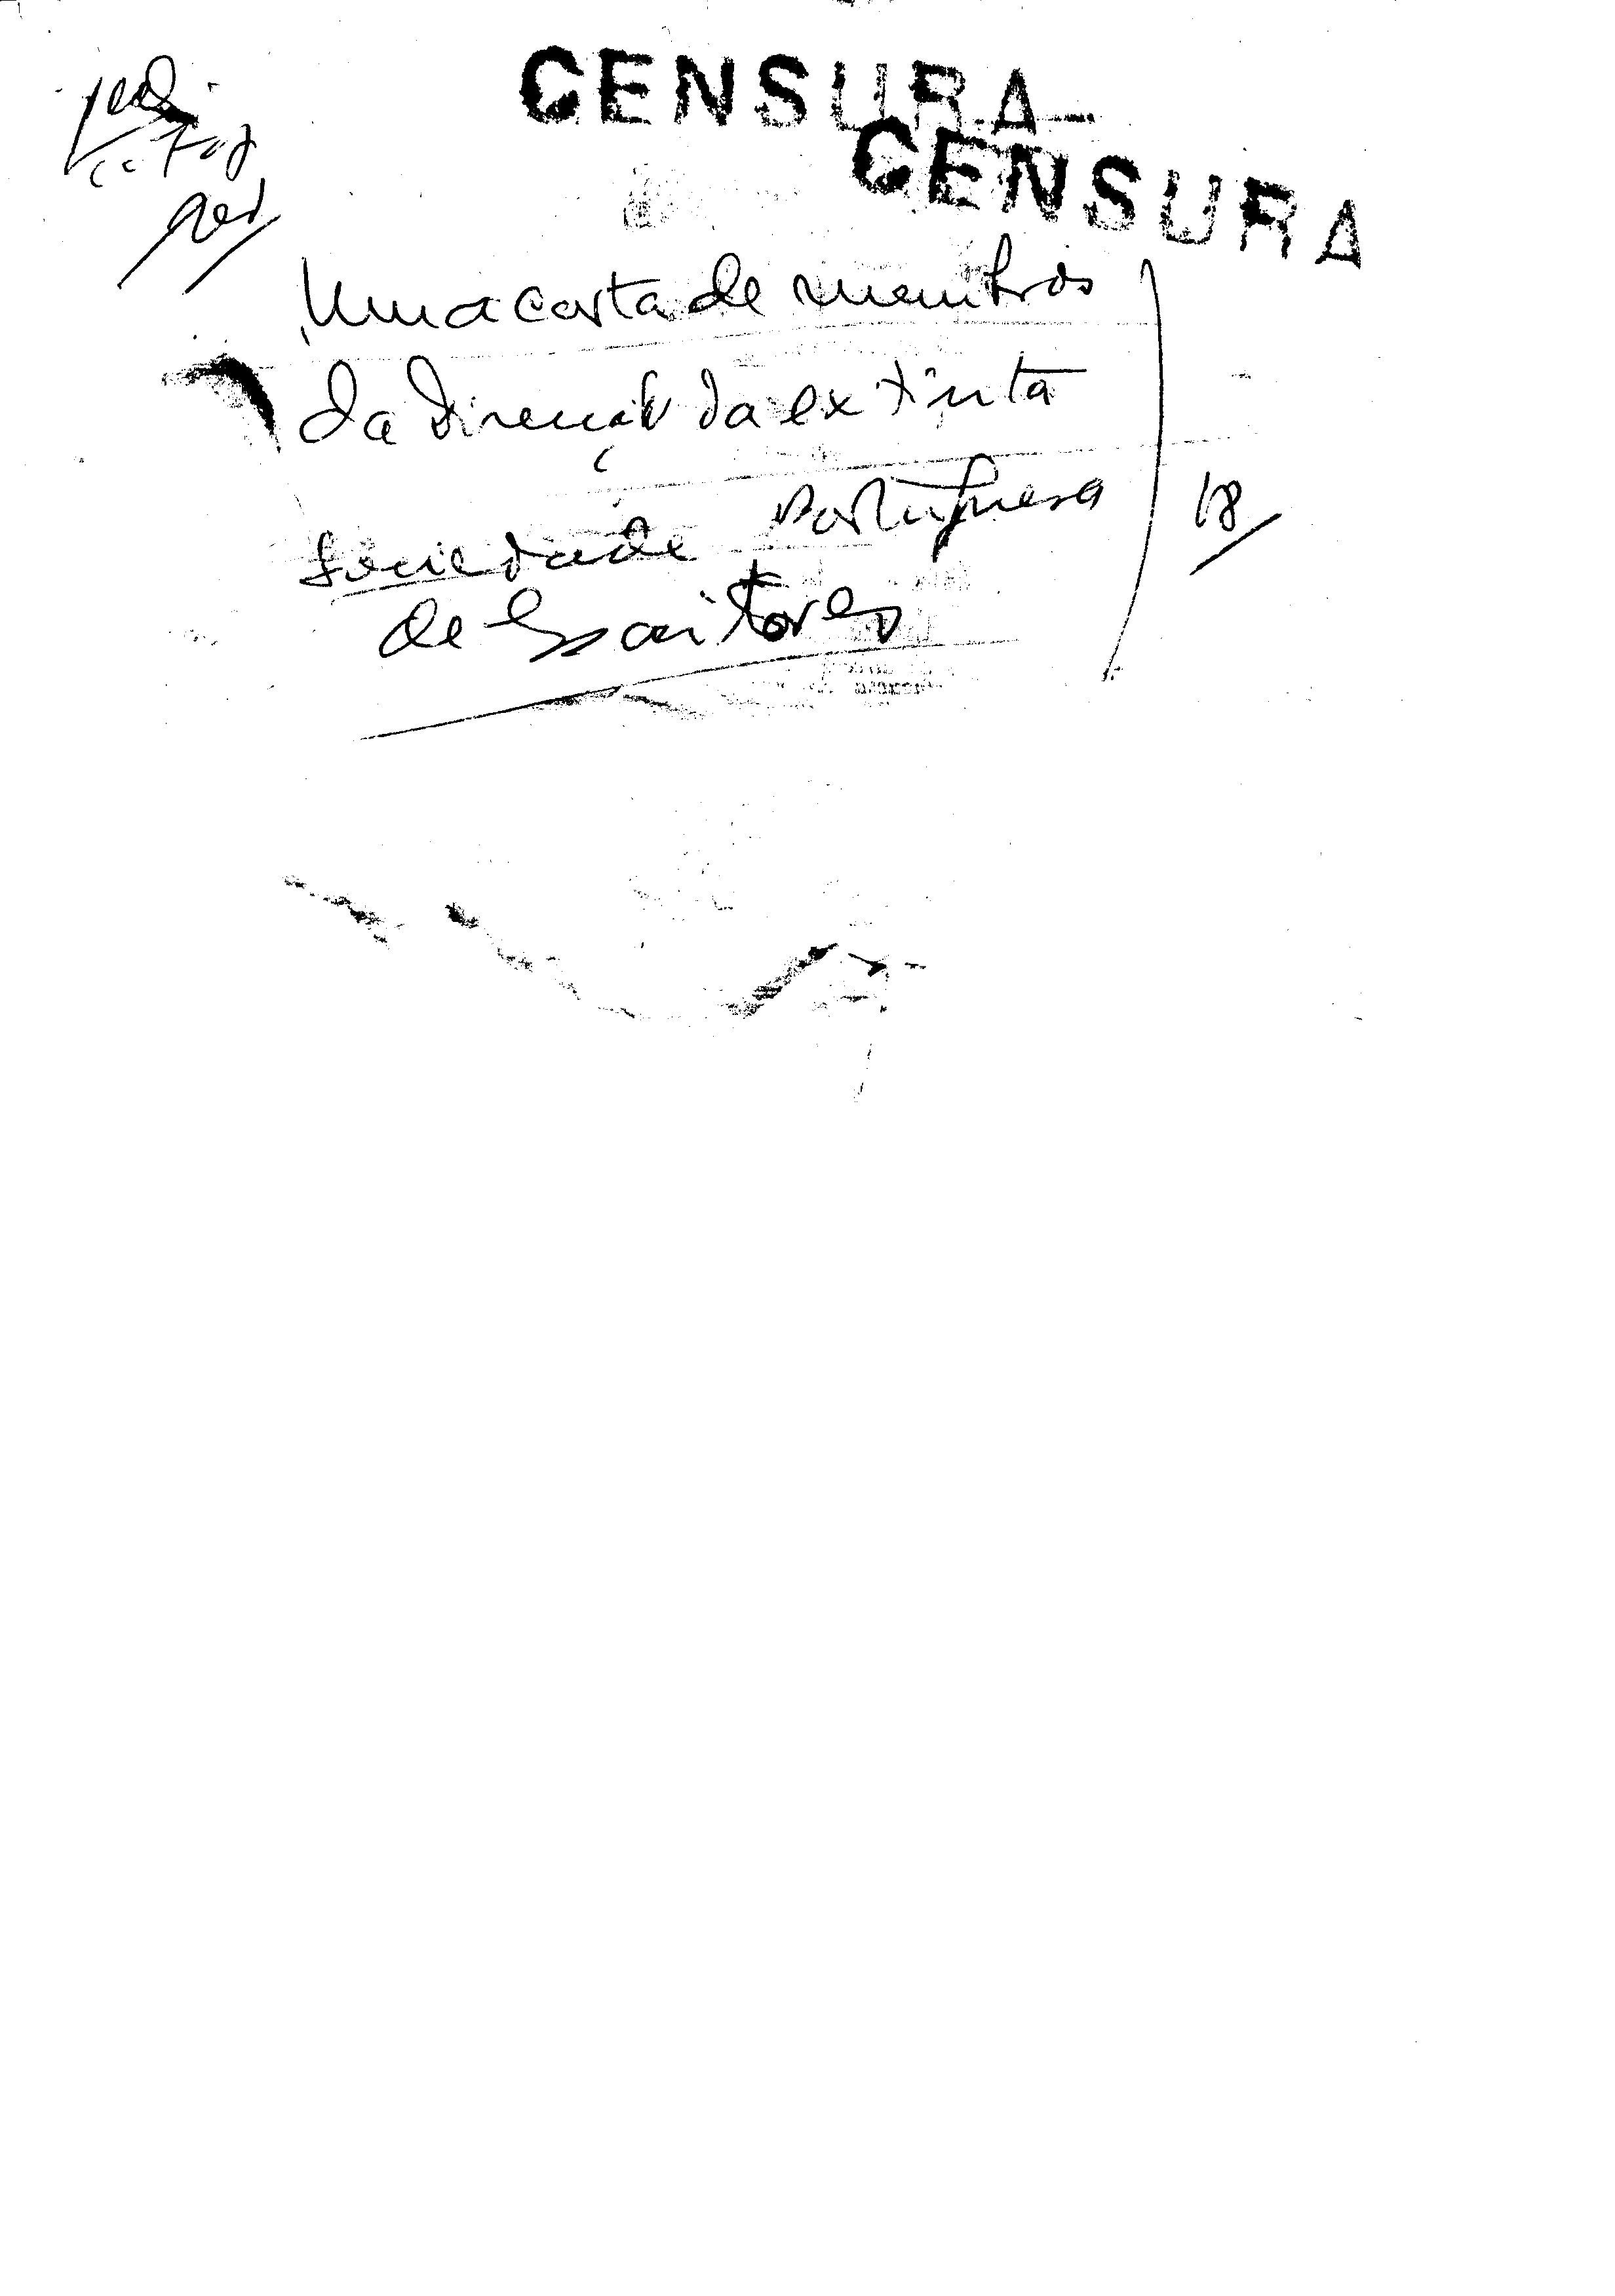 CENSURA
CENSURA
Uma carta de membros
da Direcção da extinta
Sociedade Portuguesa
de Escritores
18